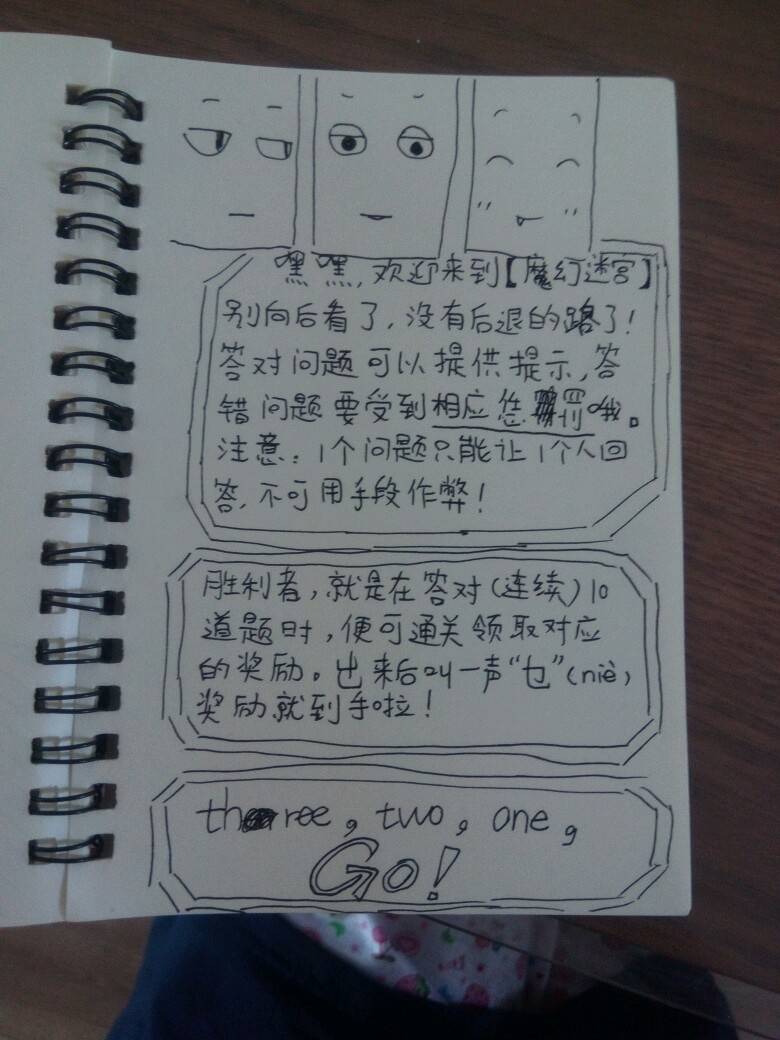 嘿嘿,欢迎来到【魔幻迷宫】
别向后看了,没有后退的路了!
答对问题可以提供提示,答
错问题要受到相应惩罚哦。
注意:1个问题只能让1个人回
答,不可用手段作弊!
胜利者,就是在答对(连续)10
道题时,便可通关领取对应
的奖励。出来后叫一声“乜”(niè,
奖励就到手啦!
three, two, one,
Go!